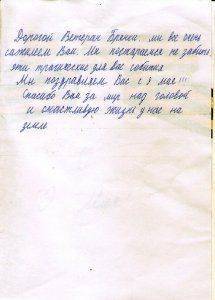 Дорогой Ветеран Бранси, мы все очень
сожалеем Вам. Мы постараемся не забыть
эти трагические для вас события
Мы поздравляем Вас с 9 мая!!!
Спасибо Вам за мир над головой
и счастливую жизнь у нас на
земле